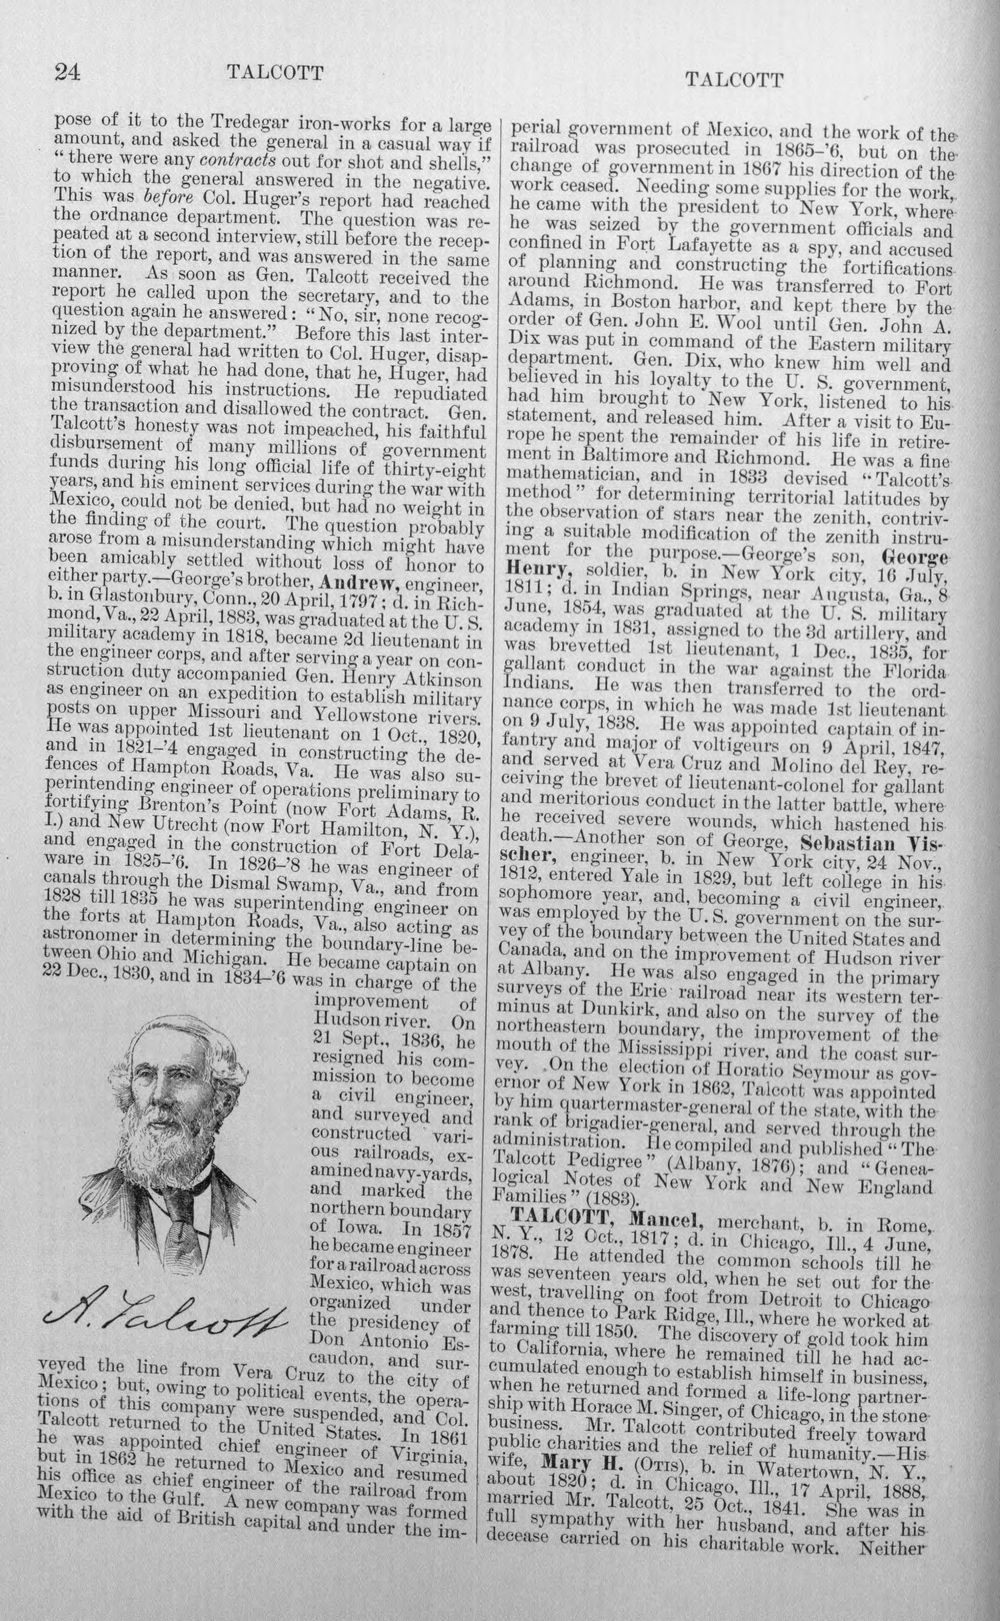 24
TALCOTT
TALCOTT
pose of it to the Tredegar iron-works for a large
amount, and asked the general in a casual way if
“ there were any contracts out for shot and shells,”
to which the general answered in the negative.
This was before Col. Huger’s report had reached
the ordnance department. The question was re-
peated at a second interview, still before the recep-
tion of the report, and was answered in the same
manner. As soon as Gen. Talcott received the
report he called upon the secretary, and to the
question again he answered : “ No, sir, none recog-
nized by the department.” Before this last inter-
view the general had written to Col. Huger, disap-
proving of what he had done, that he, Huger, had
misunderstood his instructions. He repudiated
the transaction and disallowed the contract. Gen.
Talcott’s honesty was not impeached, his faithful
disbursement of many millions of government
funds during his long official life of thirty-eight
years, and his eminent services during the war with
Mexico, could not be denied, but had no weight in
the finding of the court. The question probably
arose from a misunderstanding which might have
been amicably settled without loss of honor to
either party.—George’s brother, Andrew, engineer,
b. in Glastonbury, Conn., 20 April, 1797 ; d. in Rich-
mond, Va., 22 April, 1883, was graduated at the U. S.
military academy in 1818, became 2d lieutenant in
the engineer corps, and after serving a year on con-
struction duty accompanied Gen. Henry Atkinson
as engineer on an expedition to establish military
posts on upper Missouri and Yellowstone rivers.
He was appointed 1st lieutenant on 1 Oct., 1820,
and in 1821–’4 engaged in constructing the de-
fences of Hampton Roads, Va. He was also su-
perintending engineer of operations preliminary to
fortifying Brenton’s Point (now Fort Adams, R.
I.) and New Utrecht (now Fort Hamilton, N. Y.),
and engaged in the construction of Fort Dela-
ware in 1825–’6. In 1826–’8 he was engineer of
canals through the Dismal Swamp, Va., and from
1828 till 1835 he was superintending engineer on
the forts at Hampton Roads, Va., also acting as
astronomer in determining the boundary-line be-
tween Ohio and Michigan. He became captain on
22 Dec., 1830, and in 1834–’6 was in charge of the
improvement of
Hudson river. On
21 Sept., 1836, he
resigned his com-
mission to become
a civil engineer,
and surveyed and
constructed vari-
ous railroads, ex-
amined navy-yards,
and marked the
northern boundary
of Iowa. In 1857
he became engineer
for a railroad across
Mexico, which was
organized under
the presidency of
Don Antonio Es-
caudon, and sur-
A. Talcott
veyed the line from Vera Cruz to the city of
Mexico ; but, owing to political events, the opera-
tions of this company were suspended, and Col.
Talcott returned to the United States. In 1861
he was appointed chief engineer of Virginia,
but in 1862 he returned to Mexico and resumed
his office as chief engineer of the railroad from
Mexico to the Gulf. A new company was formed
with the aid of British capital and under the im-
perial government of Mexico, and the work of the
railroad was prosecuted in 1865–’6, but on the
change of government in 1867 his direction of the
work ceased. Needing some supplies for the work,
he came with the president to New York, where
he was seized by the government officials and
confined in Fort Lafayette as a spy, and accused
of planning and constructing the fortifications
around Richmond. He was transferred to Fort
Adams, in Boston harbor, and kept there by the
order of Gen. John E. Wool until Gen. John A.
Dix was put in command of the Eastern military
department. Gen. Dix, who knew him well and
believed in his loyalty to the U. S. government,
had him brought to New York, listened to his
statement, and released him. After a visit to Eu-
rope he spent the remainder of his life in retire-
ment in Baltimore and Richmond. He was a fine
mathematician, and in 1833 devised “ Talcott’s
method ” for determining territorial latitudes by
the observation of stars near the zenith, contriv-
ing a suitable modification of the zenith instru-
ment for the purpose.—George’s son, George
Henry, soldier, b. in New York city, 16 July,
1811 ; d. in Indian Springs, near Augusta, Ga., 8
June, 1854, was graduated at the U. S. military
academy in 1831, assigned to the 3d artillery, and
was brevetted 1st lieutenant, 1 Dec., 1835, for
gallant conduct in the war against the Florida
Indians. He was then transferred to the ord-
nance corps, in which he was made 1st lieutenant
on 9 July, 1838. He was appointed captain of in-
fantry and major of voltigeurs on 9 April, 1847,
and served at Vera Cruz and Molino del Rey, re-
ceiving the brevet of lieutenant-colonel for gallant
and meritorious conduct in the latter battle, where
he received severe wounds, which hastened his
death.—Another son of George, Sebastian Vis-
scher, engineer, b. in New York city, 24 Nov.,
1812, entered Yale in 1829, but left college in his
sophomore year, and, becoming a civil engineer,
was employed by the U. S. government on the sur-
vey of the boundary between the United States and
Canada, and on the improvement of Hudson river
at Albany. He was also engaged in the primary
surveys of the Erie railroad near its western ter-
minus at Dunkirk, and also on the survey of the
northeastern boundary, the improvement of the
mouth of the Mississippi river, and the coast sur-
vey. On the election of Horatio Seymour as gov-
ernor of New York in 1862, Talcott was appointed
by him quartermaster-general of the state, with the
rank of brigadier-general, and served through the
administration. He compiled and published “ The
Talcott Pedigree ” (Albany, 1876) ; and “ Genea-
logical Notes of New York and New England
Families ” (1883).
TALCOTT, Mancel, merchant, b. in Rome,
N. Y., 12 Oct., 1817 ; d. in Chicago, Ill., 4 June,
1878. He attended the common schools till he
was seventeen years old, when he set out for the
west, travelling on foot from Detroit to Chicago
and thence to Park Ridge, Ill., where he worked at
farming till 1850. The discovery of gold took him
to California, where he remained till he had ac-
cumulated enough to establish himself in business,
when he returned and formed a life-long partner-
ship with Horace M. Singer, of Chicago, in the stone
business. Mr. Talcott contributed freely toward
public charities and the relief of humanity.—His
wife, Mary H. (OTIS), b. in Watertown, N. Y.,
about 1820 ; d. in Chicago, Ill., 17 April, 1888,
married Mr. Talcott, 25 Oct., 1841. She was in
full sympathy with her husband, and after his
decease carried on his charitable work. Neither